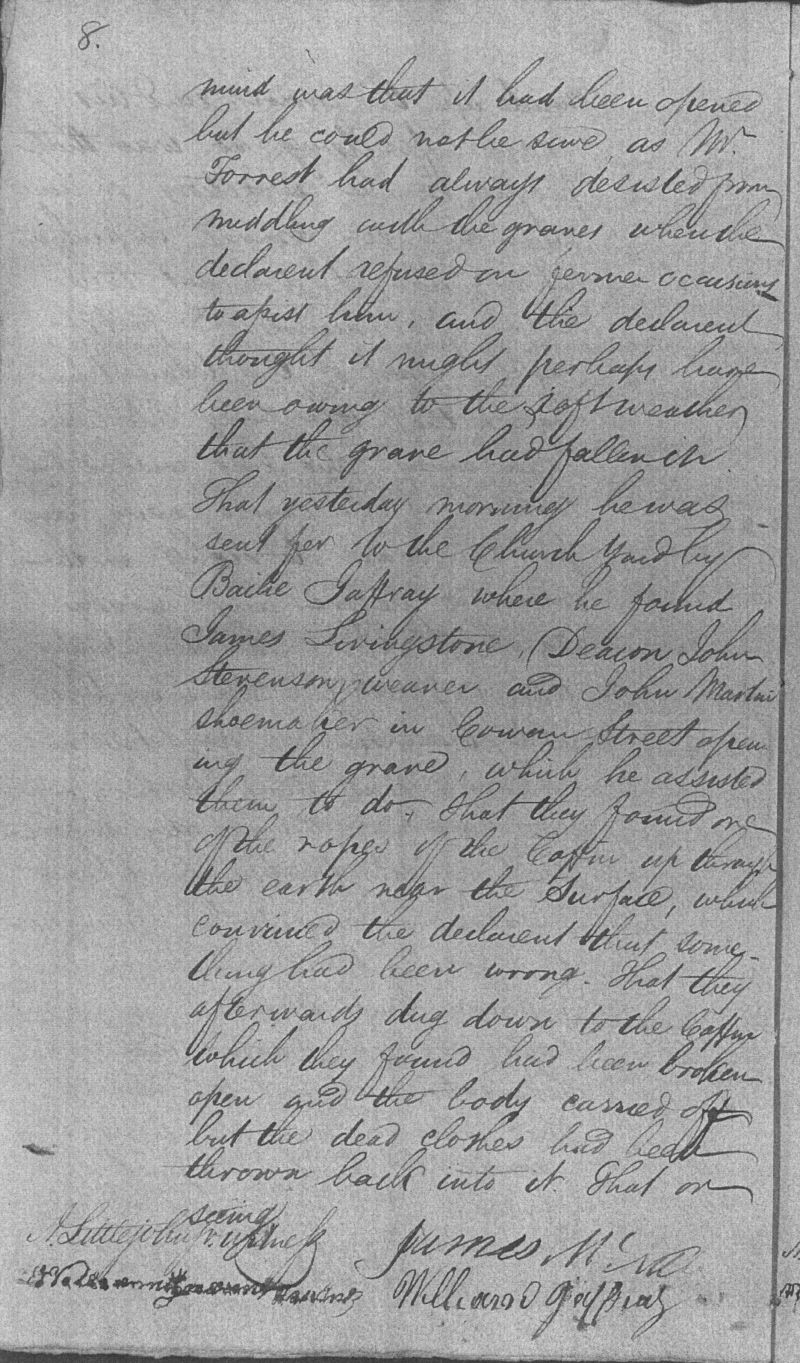 8.
mind was that it had been opened
but he could not be sure, as Mr.
Forrest had always desisted from
meddling with the graves when the
declarent refused on former occasions
to assist him, and the declarent
thought it might perhaps have
been owing to the soft weather
that the grave had fallen in
That yesterday morning he was
sent for to the Church Yard by
Bailie Jaffray where he found
James Livingstone, Deacon John
Stevenson weaver and John Martin
shoemaker in Cowan Street open
ing the grave, which he assisted
them to do, That they found one
of the ropes of the Coffin up through
the earth near the Surface, which
convinced the declarent that some-
thing had been wrong. That they
afterwards dug down to the Coffin
which they found had been broken
open and the body carried off
but the dead clothes had been
thrown back into it. That on
seeing
A. Littlejohn witness James Mc
William Jaffray